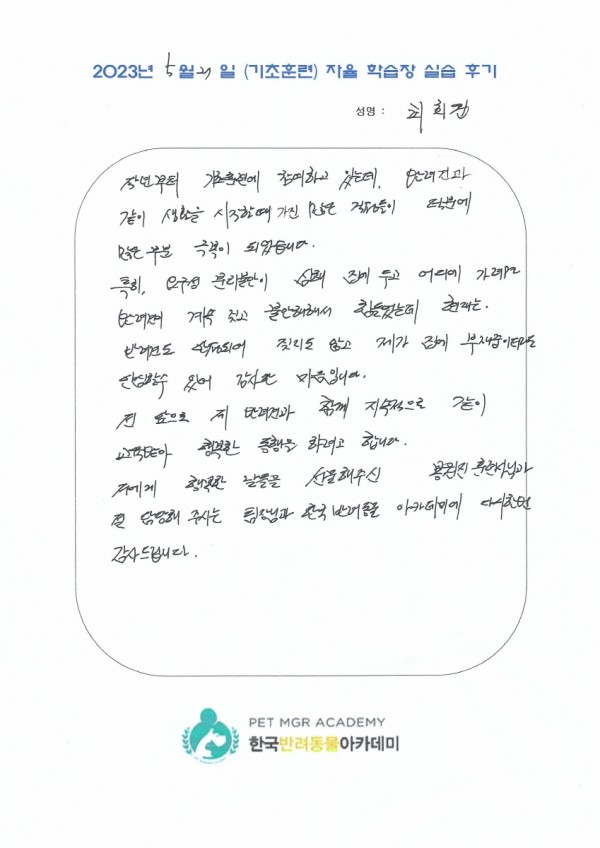 2023년 5월 21 일 (기초훈련) 자율 학습장 실습 후기
성명 : 최희진
작년부터 기초훈련에 참여하고 있는데, 반려견과
같이 생활을 시작할때 가진 많은 걱정들이 덕분에
많은 부분 극복이 되었습니다.
특히, 분리불안이 심해 집에 두고 어디에 가려면
반려견이 계속 짖고 불안해해서 힘들었는데 현재는
반려견도 안정되어 짖지도 않고 제가 집에 부재중이더라도
안심할수 있어 감사한 마음입니다.
전 앞으로 제 반려견과 함께 지속적으로 같이
교육받아 행복한 동행을 하려고 합니다.
저에게 행복한 날들을 선물해주신 훈련사님과
늘 담당해 주시는 팀장님과 한국반려동물 아카데미에 다시한번
감사드립니다.
PET MGR ACADEMY
한국반려동물아카데미